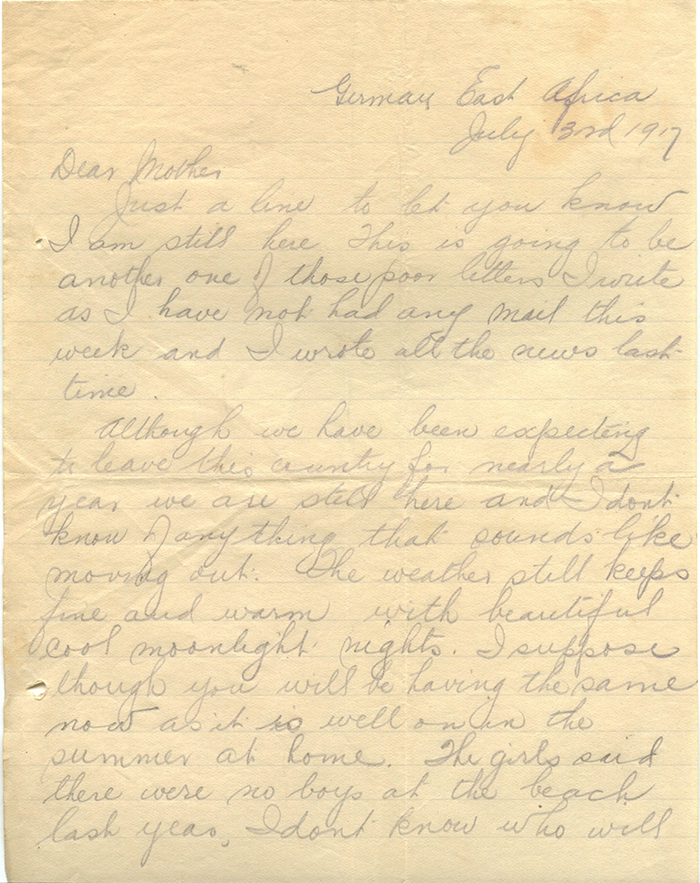 German East Africa
July 3rd 1917
Dear Mother
Just a line to let you know
I am still here This is going to be
another one of those poor letters I write
as I have not had any mail this
week and I wrote all the news last
time.
Although we have been expecting
to leave this country for nearly a
year we are still here and I dont
know of anything that sounds like
moving out. The weather still keeps
fine and warm with beautiful
cool moonlight nights. I suppose
though you will be having the same
now as it is well on in the
summer at home. The girls said
there were no boys at the beach
last year, I dont know who will